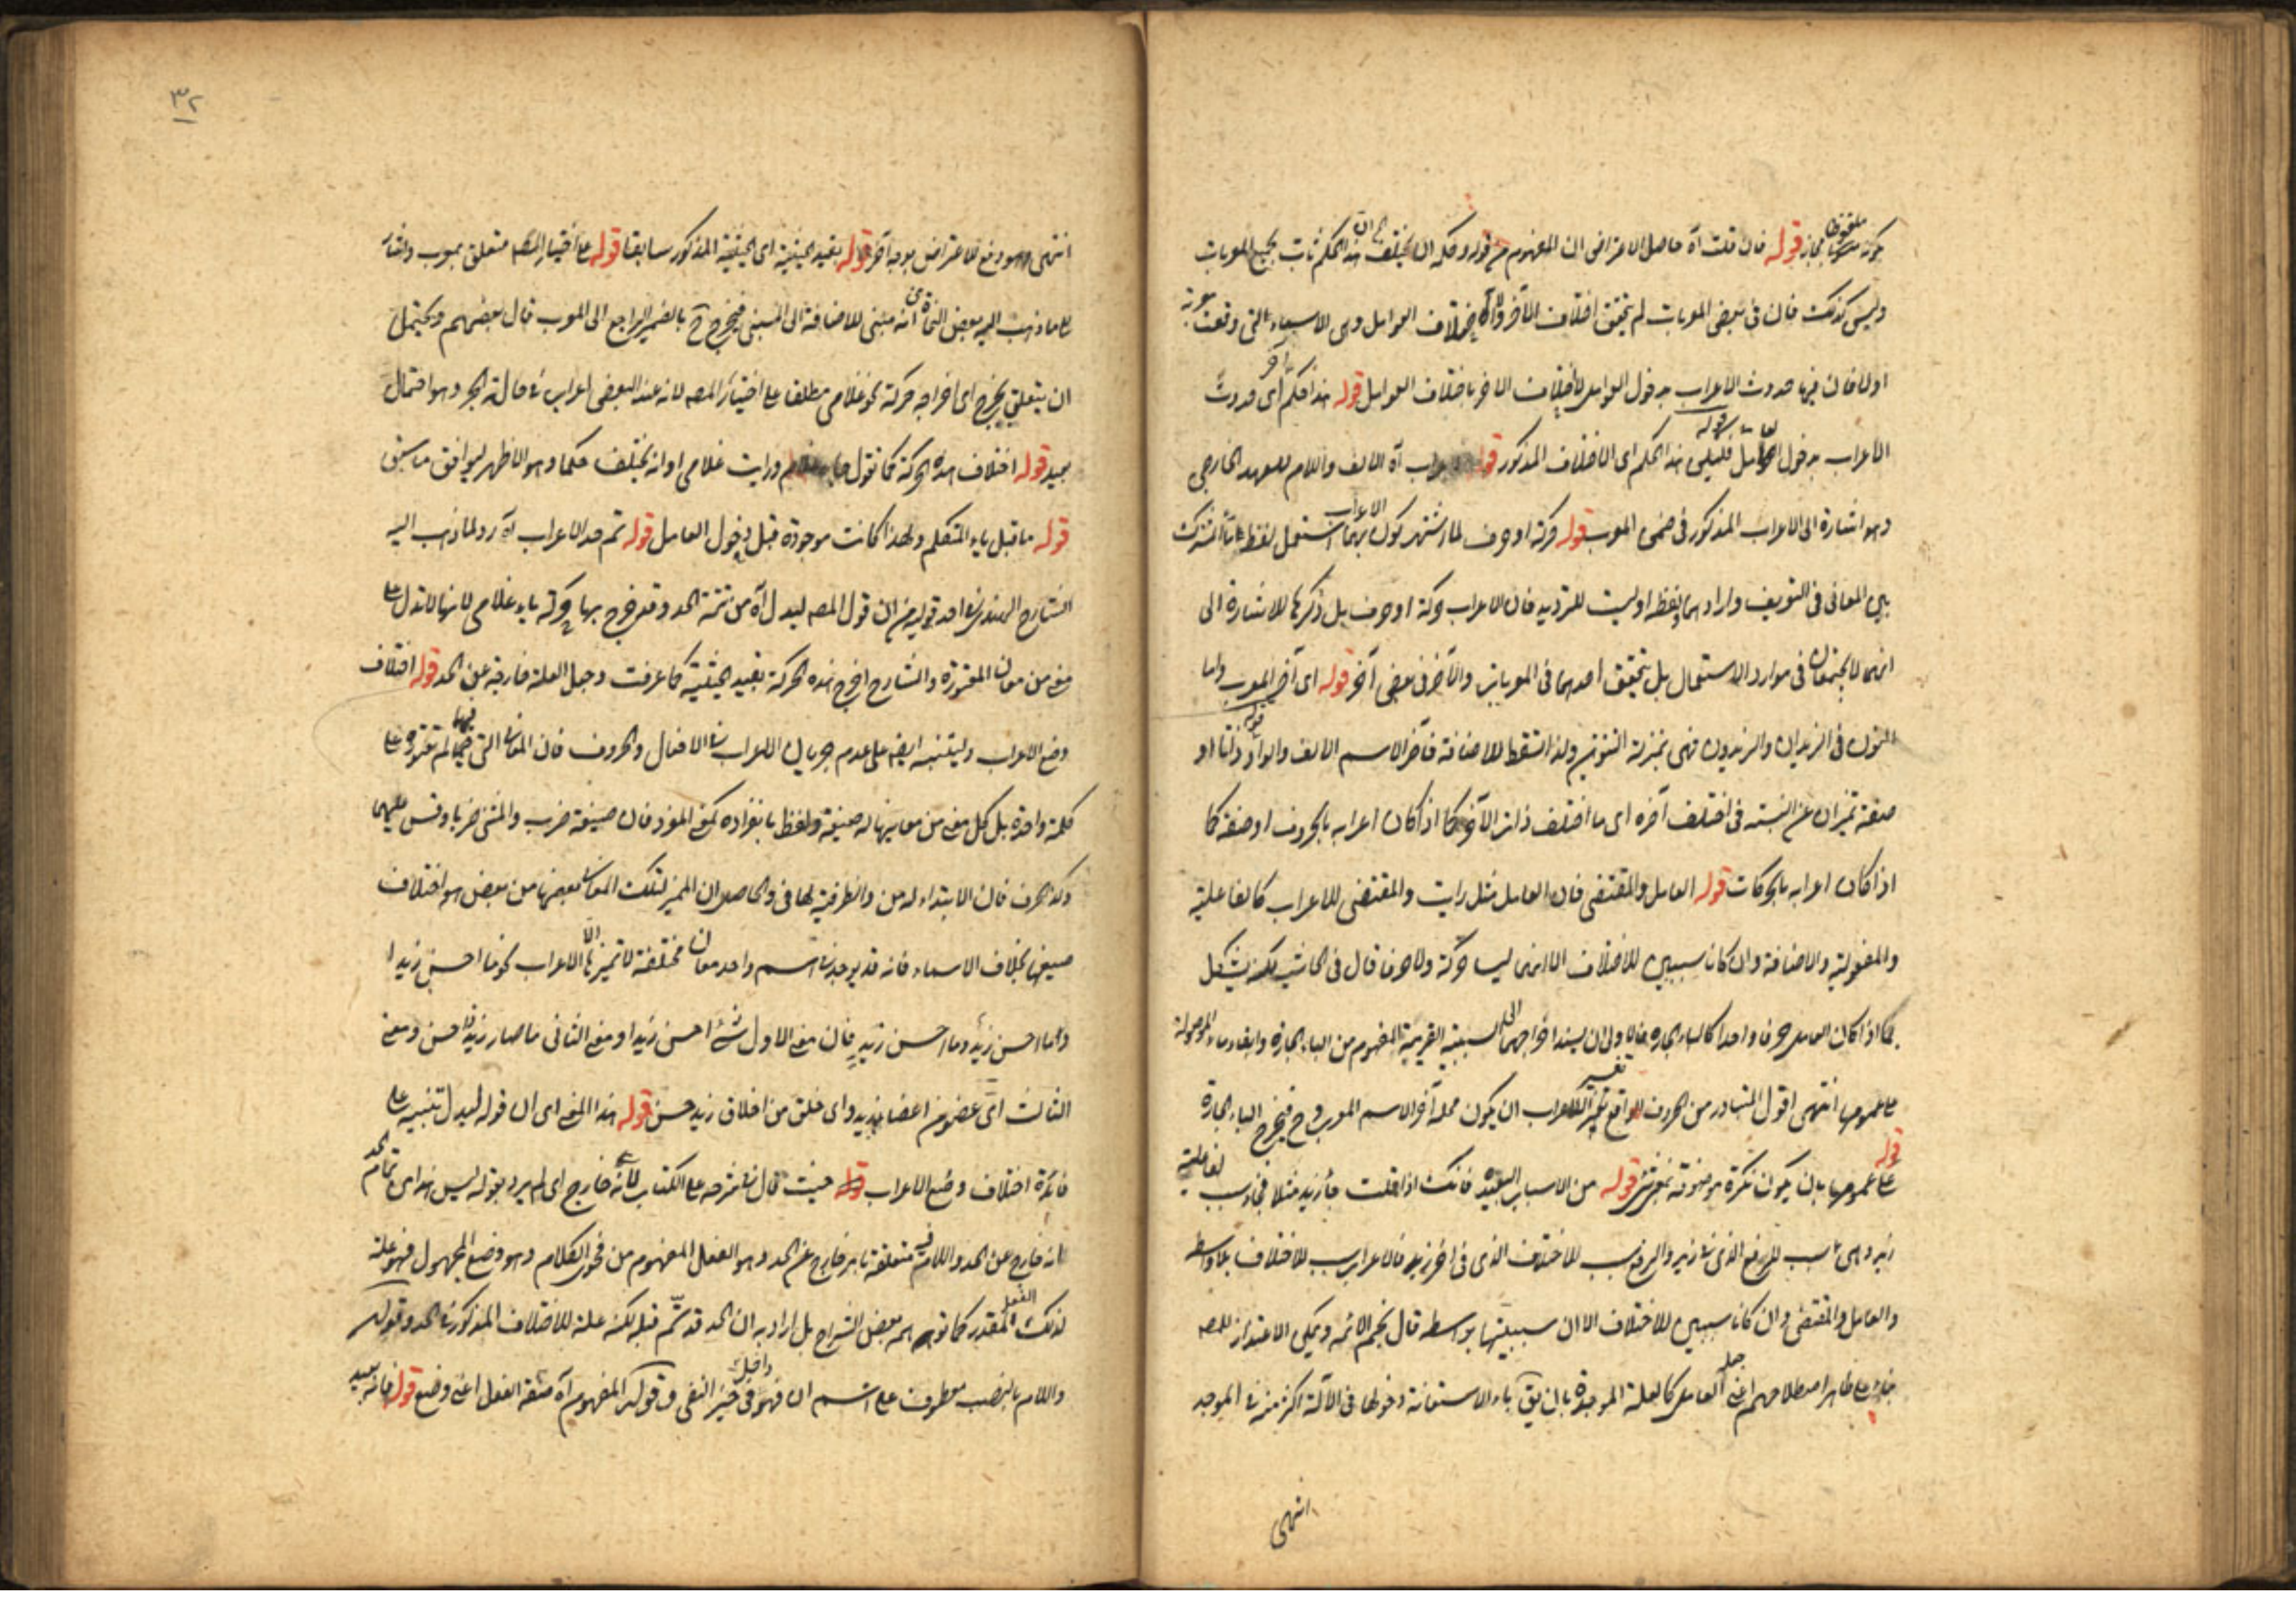 قوله فان قلت آه حاصل الاعتراض ان المفهوم من قوله وحكمه ان يختلف ان هذا الحكم ثابت لجميع المعربات
وليس كذلك فان في بعض المعربات لم يتحقق اختلاف الآخر ولا اختلاف العوامل وهي الاسماء التي وقعت معربة
اولا فان فيها حدوث الاعراب بدخول العوامل لا اختلاف الآخر باختلاف العوامل قوله هذا حكم آخر اي حدوث
الاعراب بدخول العامل فليس هذا الحكم اي الاختلاف المذكور قوله آه الالف واللام للعهد الخارجي
وهو اشارة الى الاعراب المذكور في ضمن المعرب قوله حركة او حرف لما اشتهر كون الاعراب بهما استعمل لفظ المشترك
بين المعاني في التعريف واراد بهما بلفظه او ليست للترديد فان الاعراب حركة او حرف بل ذكرها للاشارة الى
انهما لا يجتمعان في موارد الاستعمال بل يتحقق احدهما في المعربات والآخر في بعض آخر قوله اي آخر المعرب واما
النون في الزيدان والزيدون فهي بمنزلة التنوين ولذا تسقط للاضافة فآخر الاسم الالف والواو قوله ذاتا او
صفة تميزان عن النسبة في اختلف آخره اي ما اختلف ذات الآخر كما اذا كان اعرابه بالحروف او صفة كما
اذا كان اعرابه بالحركات قوله العامل والمقتضي فان العامل مثل رايت والمقتضي للاعراب كالفاعلية
والمفعولية والاضافة وان كانا سببين للاختلاف الا انهما ليسا حركة ولا حرفا قال في الحاشية لكنه يشكل
بما اذا كان العامل حرفا واحدا كالباء الجارة فالاولى ان يسند اخراجهما الى السببية القريبة المفهوم من الباء الجارة وابقاء ما الموصولة
على عمومها انتهى اقول المتبادر من الحروف الواقع تفسير الاعراب ان يكون محله آخر الاسم المعرب وح فيخرج الباء الجارة
قوله على عمومها بان يكون نكرة موصوفة قوله من الاسباب البعيدة فانك اذا قلت جاء زيد مثلا فجاء سبب لفاعلية
زيد وهي سبب للرفع الذي في زيد والرفع سبب للاختلاف الذي في آخر زيد فالاعراب سبب للاختلاف بلا واسطة
والعامل والمقتضي وان كانا سببين للاختلاف الا ان سببيتهما بواسطة قال نجم الائمة ويمكن الاعتذار للمصه
على ظاهر اصطلاحهم اعني جعل العامل كالعلة الموجدة بان يق باء الاستعانة دخولها في الآلة اكثر منه في الموجد
انتهى
٣٢
انتهى وهو دفع للاعتراض بوجه آخر قوله بقيد الحيثية اي الحيثية المذكور سابقا قوله على اختيار المصه متعلق بمعرب واشار
على ما ذهب اليه بعض النحاة من انه مبني للاضافة الى المبني فيخرج ح بالضمير الراجع الى المعرب قال بعضهم ويحتمل
ان يتعلق بخرج اي اخراجه حركة نحو غلامي مطلقا على اختيار المصه لانه عند البعض اعراب في حالة الجر وهو احتمال
بعيد قوله اختلاف هذه الحركة كما تقول ورايت غلامي او انه يختلف حكما وهو الاظهر ليوافق ما سبق
قوله ما قبل ياء المتكلم ولهذا كانت موجودة قبل دخول العامل قوله تم حد الاعراب آه رد لما ذهب اليه
الشارح الهندي في احد قوليه من ان قول المصه ليدل آه من تتمة الحد وقد خرج بها حركة باء غلامي لانها لا تدل على
معنى من معان المعتورة والشارح اخرج هذه الحركة بقيد الحيثية كما عرفت وجعل العلة خارجة عن الحد قوله اختلاف
وضع الاعراب وليتنبه ايضا على عدم جريان الاعراب في الافعال والحروف فان المعاني التي فيهما لم تعتوره على
كلمة واحدة بل كل معنى من معانيها له صيغة ولفظ بانفراده كمعنى المفرد فان صيغة ضرب والمثنى ضربا وقس عليهما
وكذا الحرف فان الابتداء له من والظرفية لها في والحاصل ان المميز لتلك المعاني بعضها من بعض هو اختلاف
صيغها بخلاف الاسماء فانه قد يوجد في اسم واحد معان مختلفة لا تميزها الا الاعراب نحو ما احسن زيدا
وما احسن زيد وما احسن زيد فان معنى الاول شيء احسن زيدا ومعنى الثاني ما صار زيد ذا حسن ومعنى
الثالث اي عضو من اعضاء زيد واي خلق من اخلاق زيد حسن قوله هذا المعنى اي ان قوله ليدل تنبيه على
فائدة اختلاف وضع الاعراب قوله حيث قال في شرحه على الكتاب لانه خارج اي لم يرد بقوله ليس هذا من تمام الحد
انه خارج عن الحد واللام فيه متعلقة بامر خارج عن الحد وهو الفعل المفهوم من فحوى الكلام وهو وضع المجهول فهو علة
لذلك الفعل المقدر كما توهمه بعض الشراح بل اراد به ان الحد قد تم قبله لكنه علة للاختلاف المذكور في الحد وقوله
واللام بالنصب معطوف على اسم ان فهو داخل في حيز النفي وقوله المفهوم آه صفة الفعل اعني وضع قوله فانه بعيد